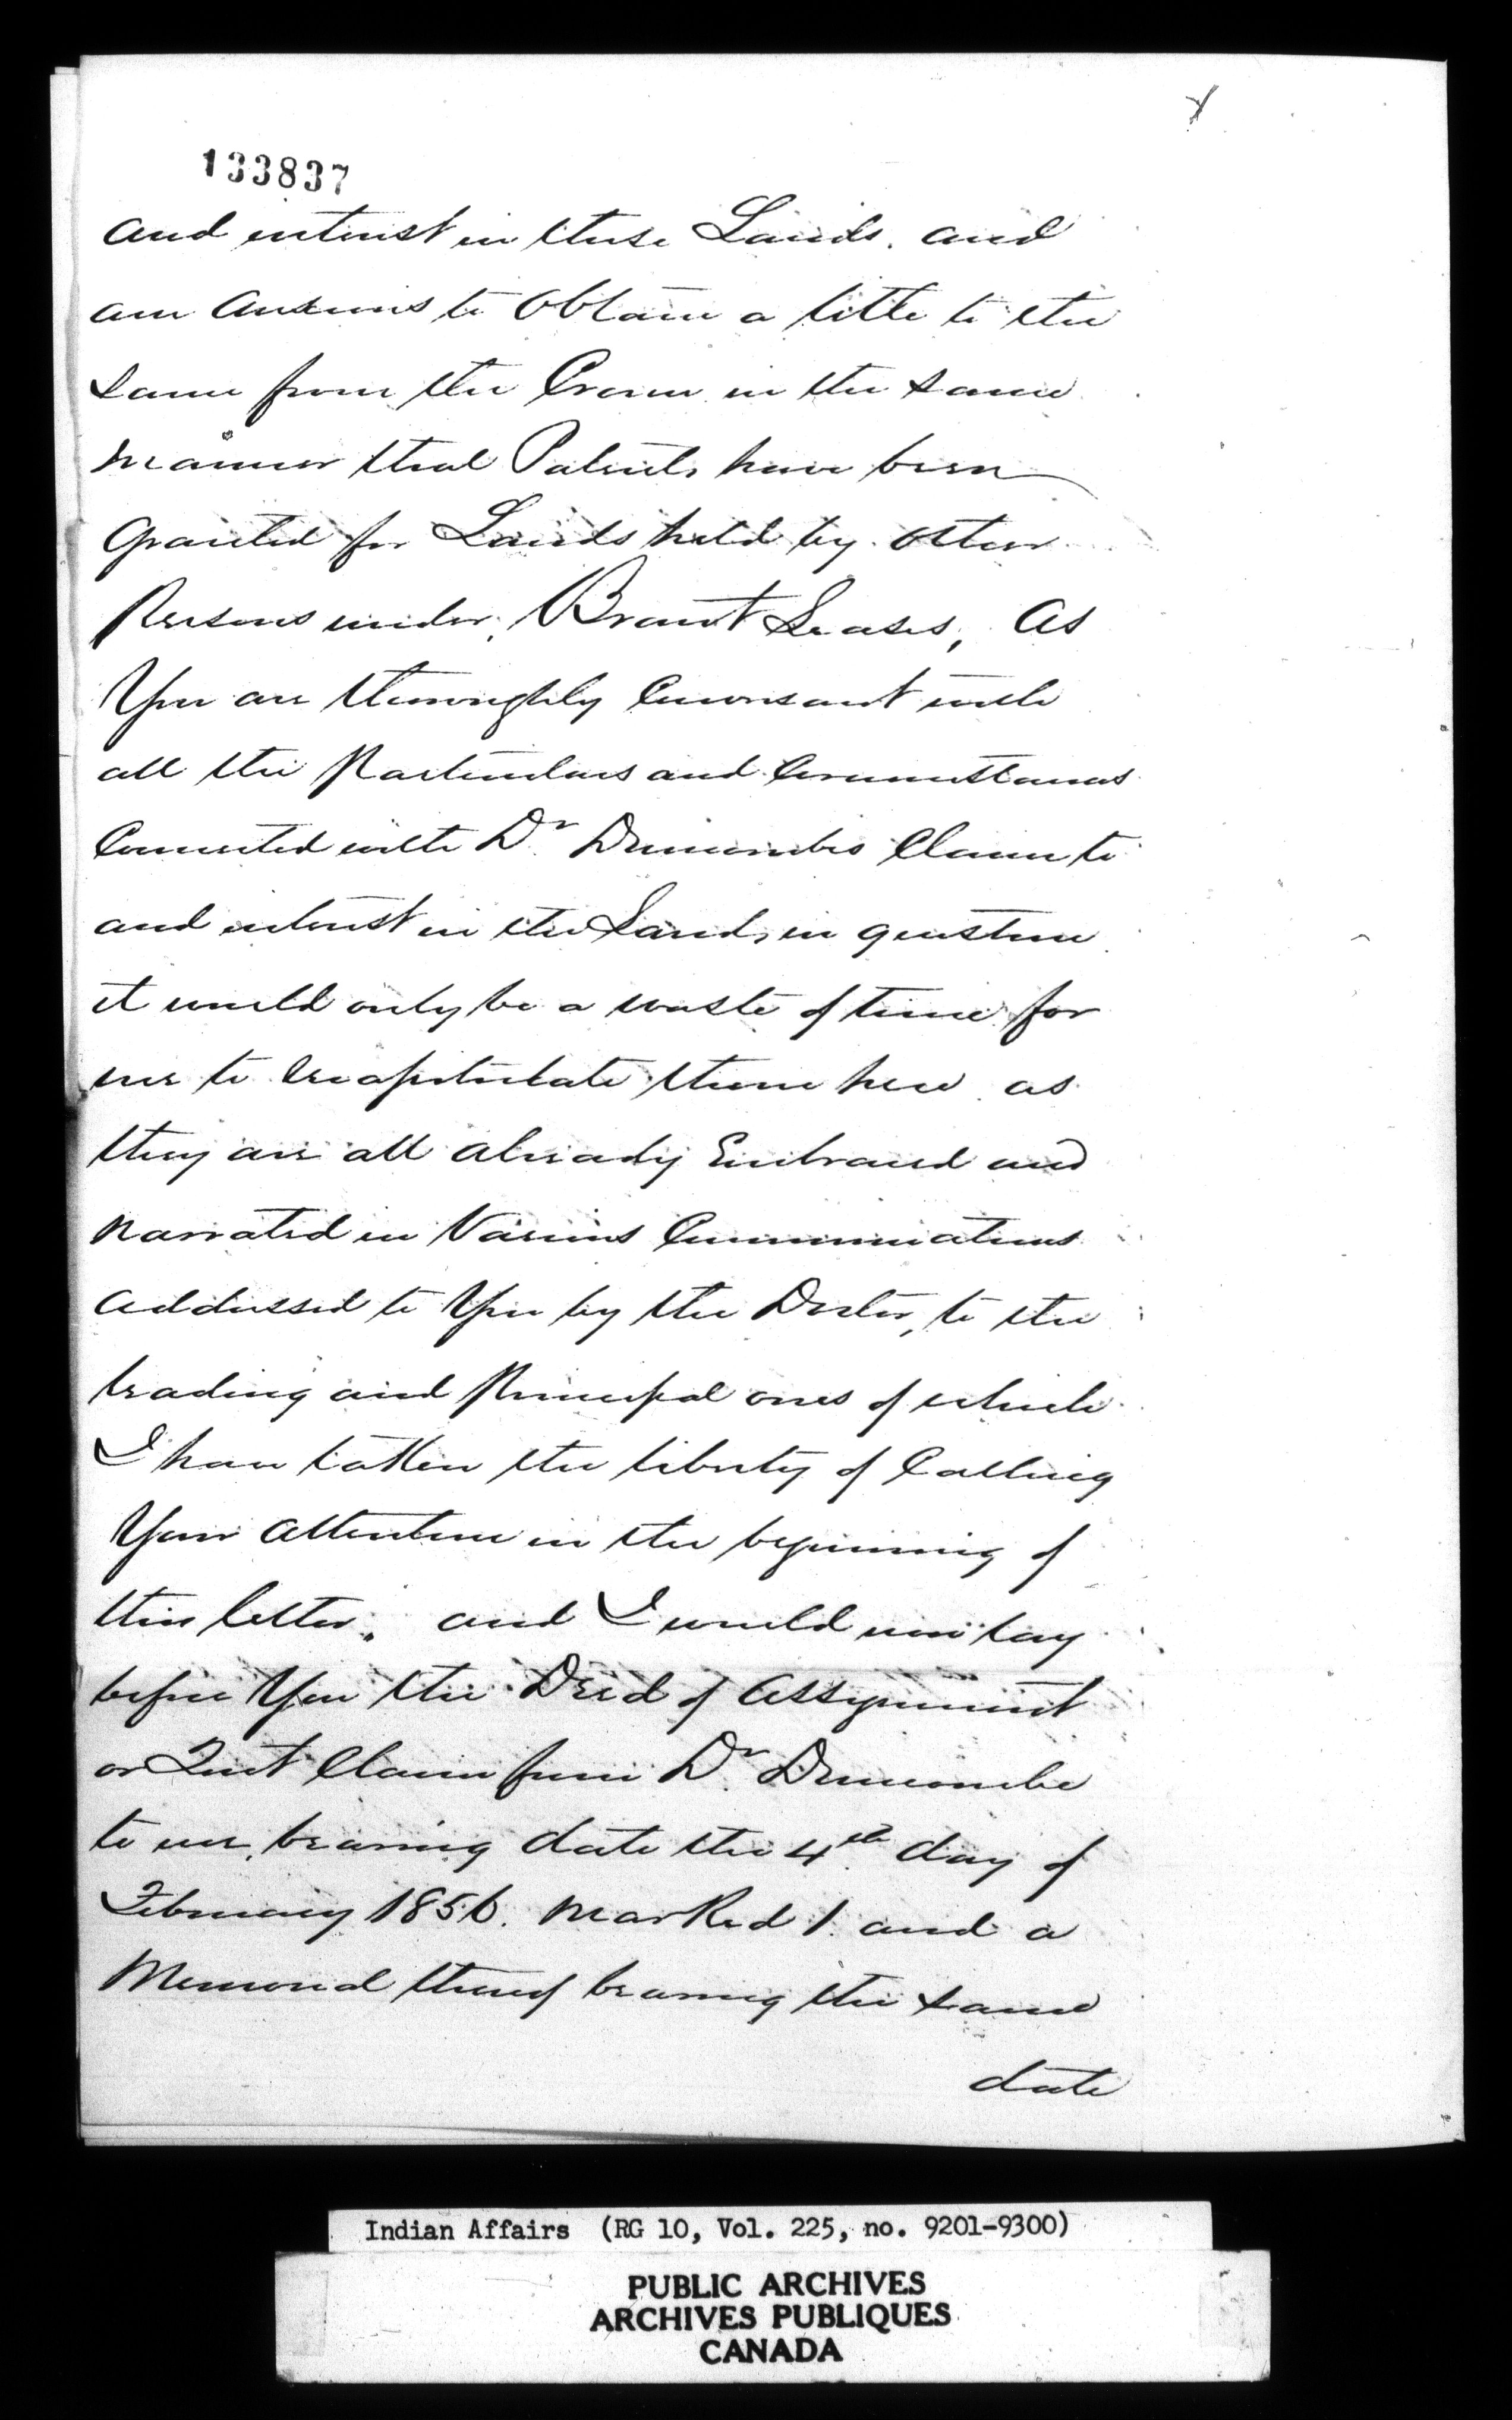 133837
and interest in these Lands. and
am anxious to obtain a title to the
same from the Crown in the same
manner that Patents have been
granted for Lands held by other
Persons under, Brant Leases, As
You are thoroughly Conversant with
all the Particulars and Circumstances
Connected with Dr. Duncombes Claim to
and interest in the Lands in question
it would only be a waste of time for
me to recapitulate them here as
they are all already Embraced and
narrated in Various Communications
addressed to You by the Doctor, to the
leading and Principal ones of which
I have taken the liberty of Calling
Your attention in the beginning of
this letter. and I would now lay
before You the Deed of Assignment
or Quit Claim from Dr. Duncombe
to me, bearing date the 4th day of
February 1856. marked 1. and a
Memorial thereof bearing the same
date
Indian Affairs (RG 10, Vol. 225, no. 9201-9300)
PUBLIC ARCHIVES
ARCHIVES PUBLIQUES
CANADA